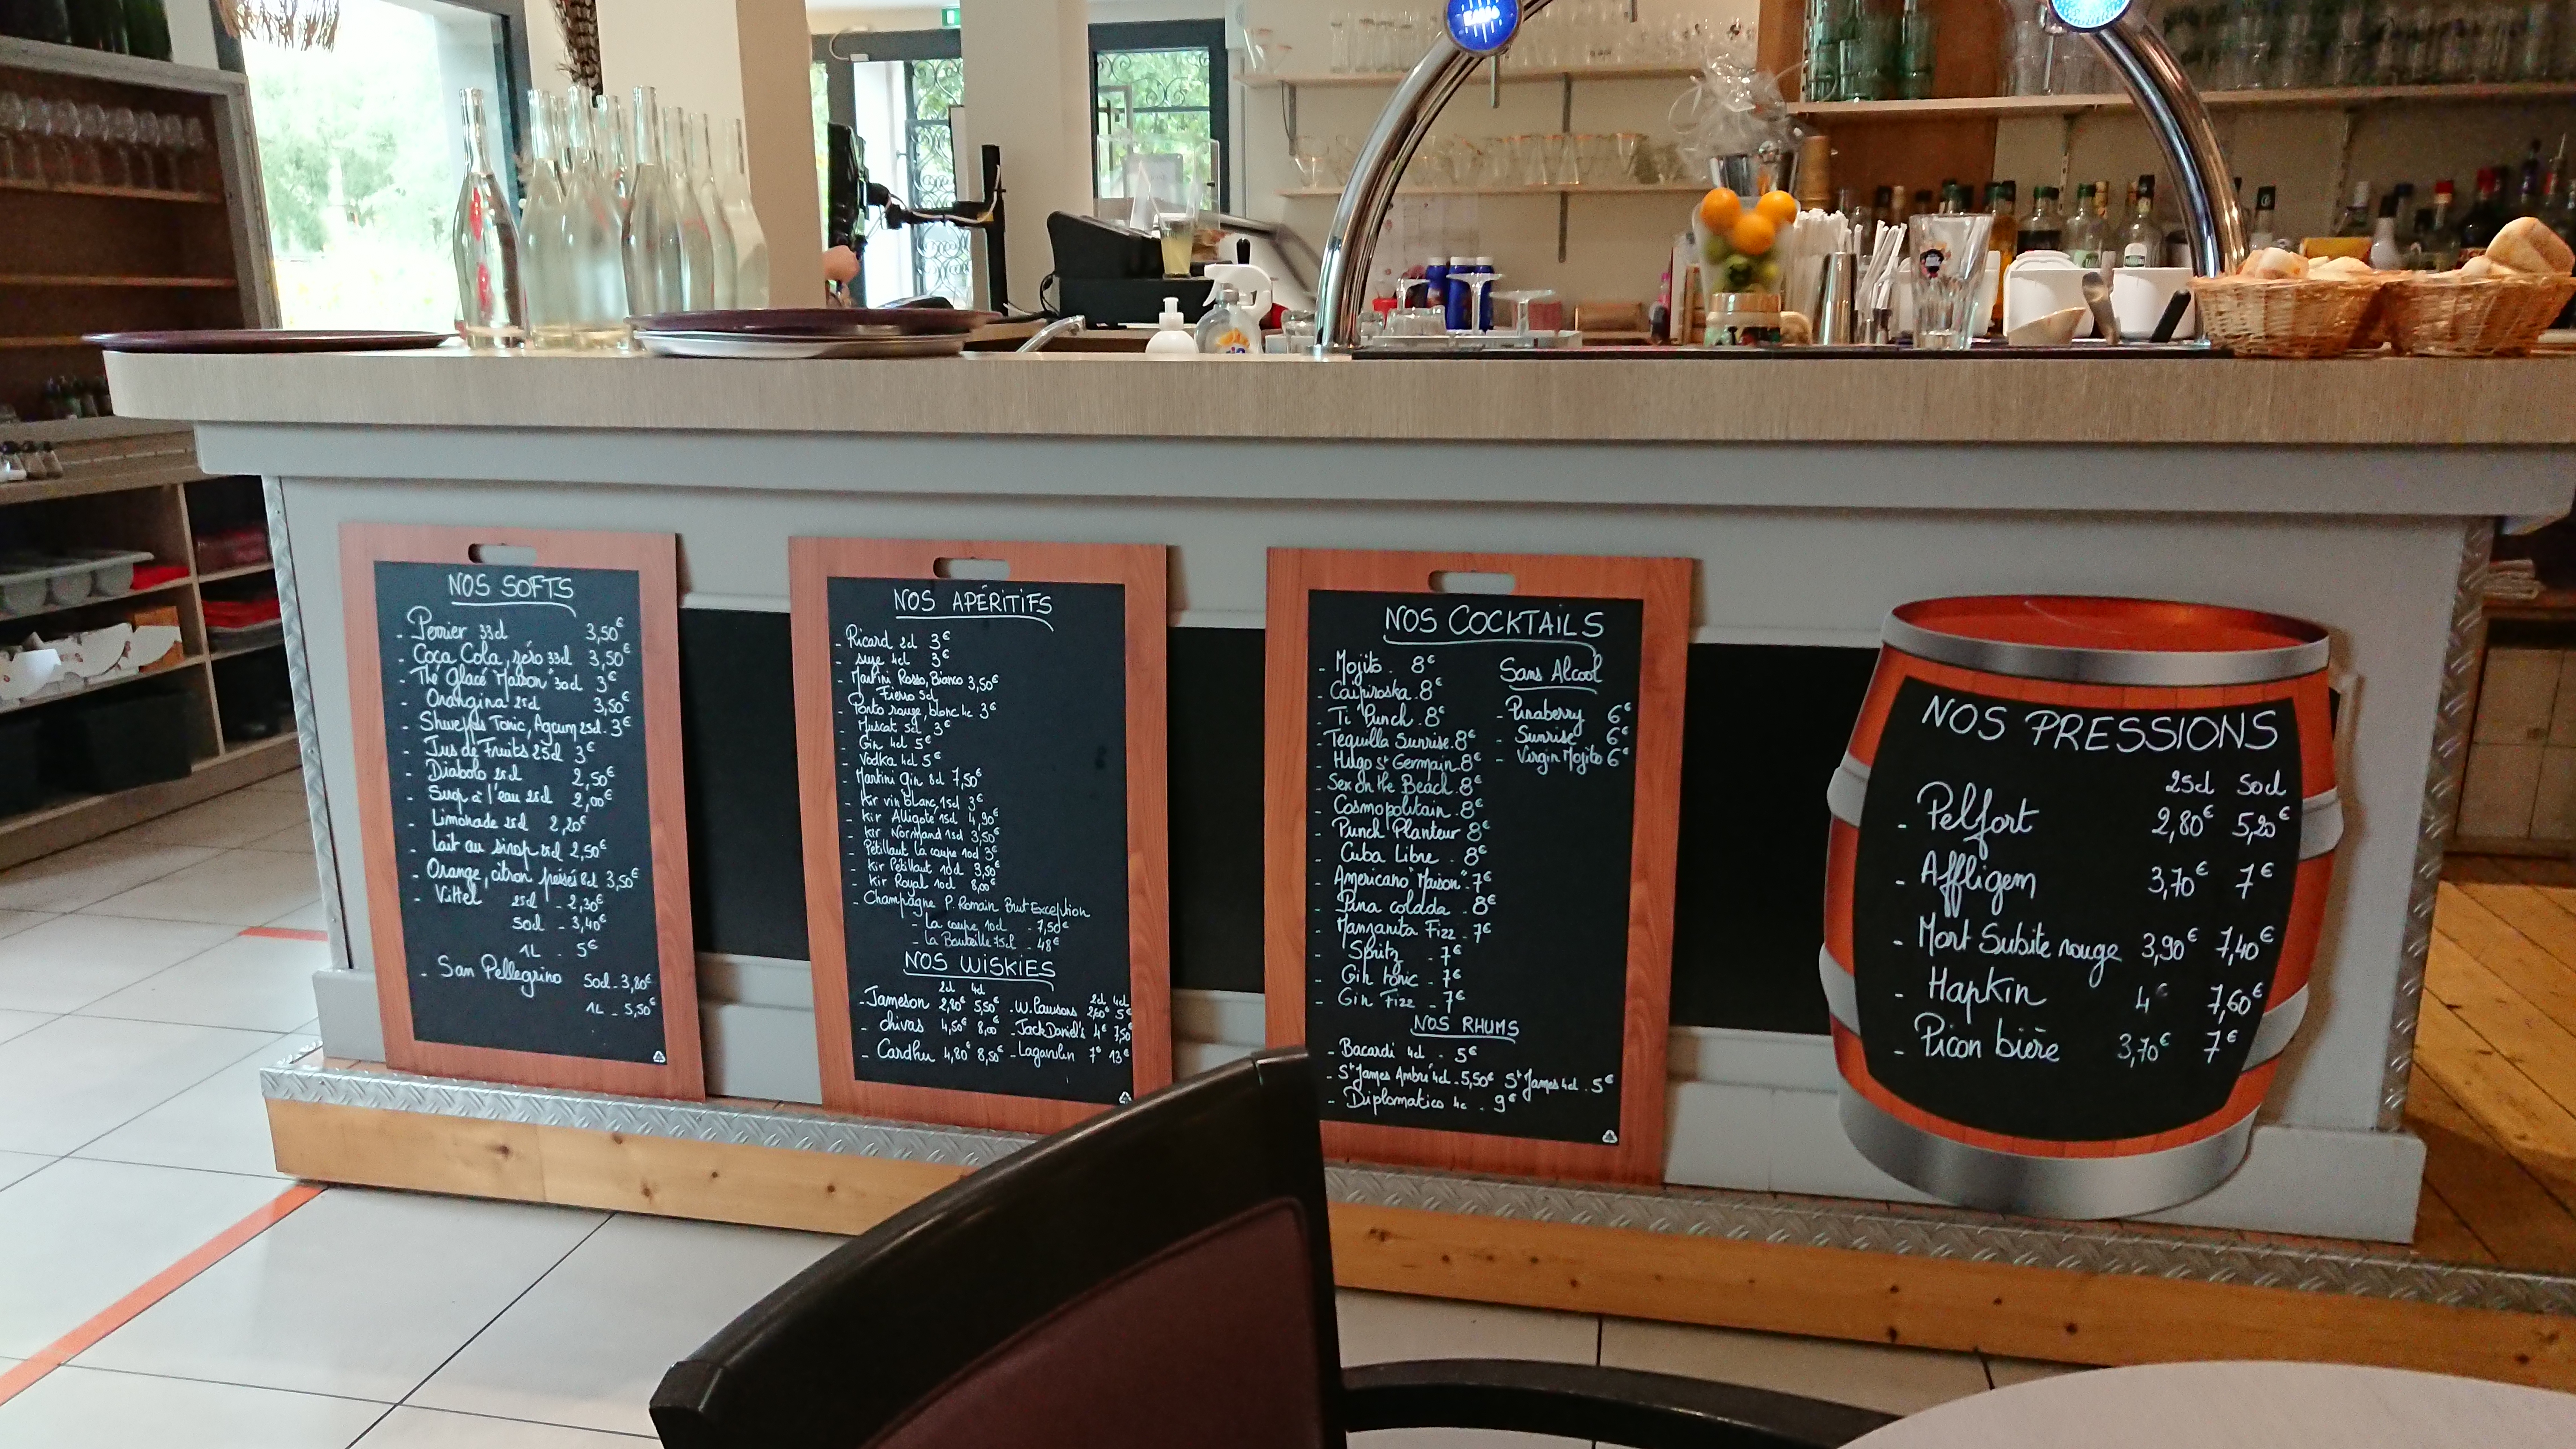 NOS SOFTS
- Perrier 33cl 3,50€
- Coca Cola, zéro 33cl 3,50€
- Thé Glacé "Maison" 30cl 3€
- Orangina 25cl 3,50€
- Shweppes Tonic, Agrum 25cl. 3€
- Jus de Fruits 25cl 3€
- Diabolo 25cl 2,50€
- Sirop à l'eau 25cl 2,00€
- Limonade 25cl 2,20€
- Lait au sirop 25cl 2,50€
- Orange, citron pressés 8cl 3,50€
- Vittel 25cl - 2,30€
50cl - 3,40€
1L - 5€
- San Pellegrino 50cl - 3,80€
1L - 5,50€
NOS APÉRITIFS
- Ricard 2cl 3€
- Suze 4cl 3€
- Martini Rosso, Bianco 3,50€
Fiero 5cl
- Porto rouge, blanc 4c 3€
- Muscat 5cl 3€
- Gin 4cl 5€
- Vodka 4cl 5€
- Martini Gin 8cl 7,50€
- Kir vin blanc 15cl 3€
- Kir Alligoté 15cl 4,90€
- Kir Normand 15cl 3,50€
- Pétillant La coupe 10cl 3€
- Kir Pétillant 10cl 3,50€
- Kir Royal 10cl 8,00€
- Champagne P. Romain Brut Exception
- La coupe 10cl - 7,50€
- La Bouteille 75cl - 48€
NOS WISKIES
2cl 4cl
- Jameson 2,80€ 5,50€
- Chivas 4,50€ 8,00€
- Cardhu 4,80€ 8,50€
2cl 4cl
- W. Lawsons 2,60€ 5€
- Jack Daniel's 4€ 7,50€
- Lagavulin 7€ 13€
NOS COCKTAILS
- Mojito. 8€
- Caipiroska. 8€
- Ti Punch. 8€
- Tequilla Sunrise. 8€
- Hugo St Germain. 8€
- Sex on the Beach. 8€
- Cosmopolitain. 8€
- Punch Planteur 8€
- Cuba Libre. 8€
- Americano "Maison". 7€
- Pina colada. 8€
- Manzanita Fizz - 7€
- Spritz - 7€
- Gin tonic - 7€
- Gin Fizz - 7€
Sans Alcool
- Pinaberry 6€
- Sunrise 6€
- Virgin Mojito 6€
NOS RHUMS
- Bacardi 4cl - 5€
- St James Ambré 4cl - 5,50€ St James 4cl . 5€
- Diplomatico 4c - 9€
NOS PRESSIONS
25cl 50cl
- Pelfort 2,80€ 5,20€
- Affligem 3,70€ 7€
- Mort Subite rouge 3,90€ 7,40€
- Hapkin 4€ 7,60€
- Picon bière 3,70€ 7€